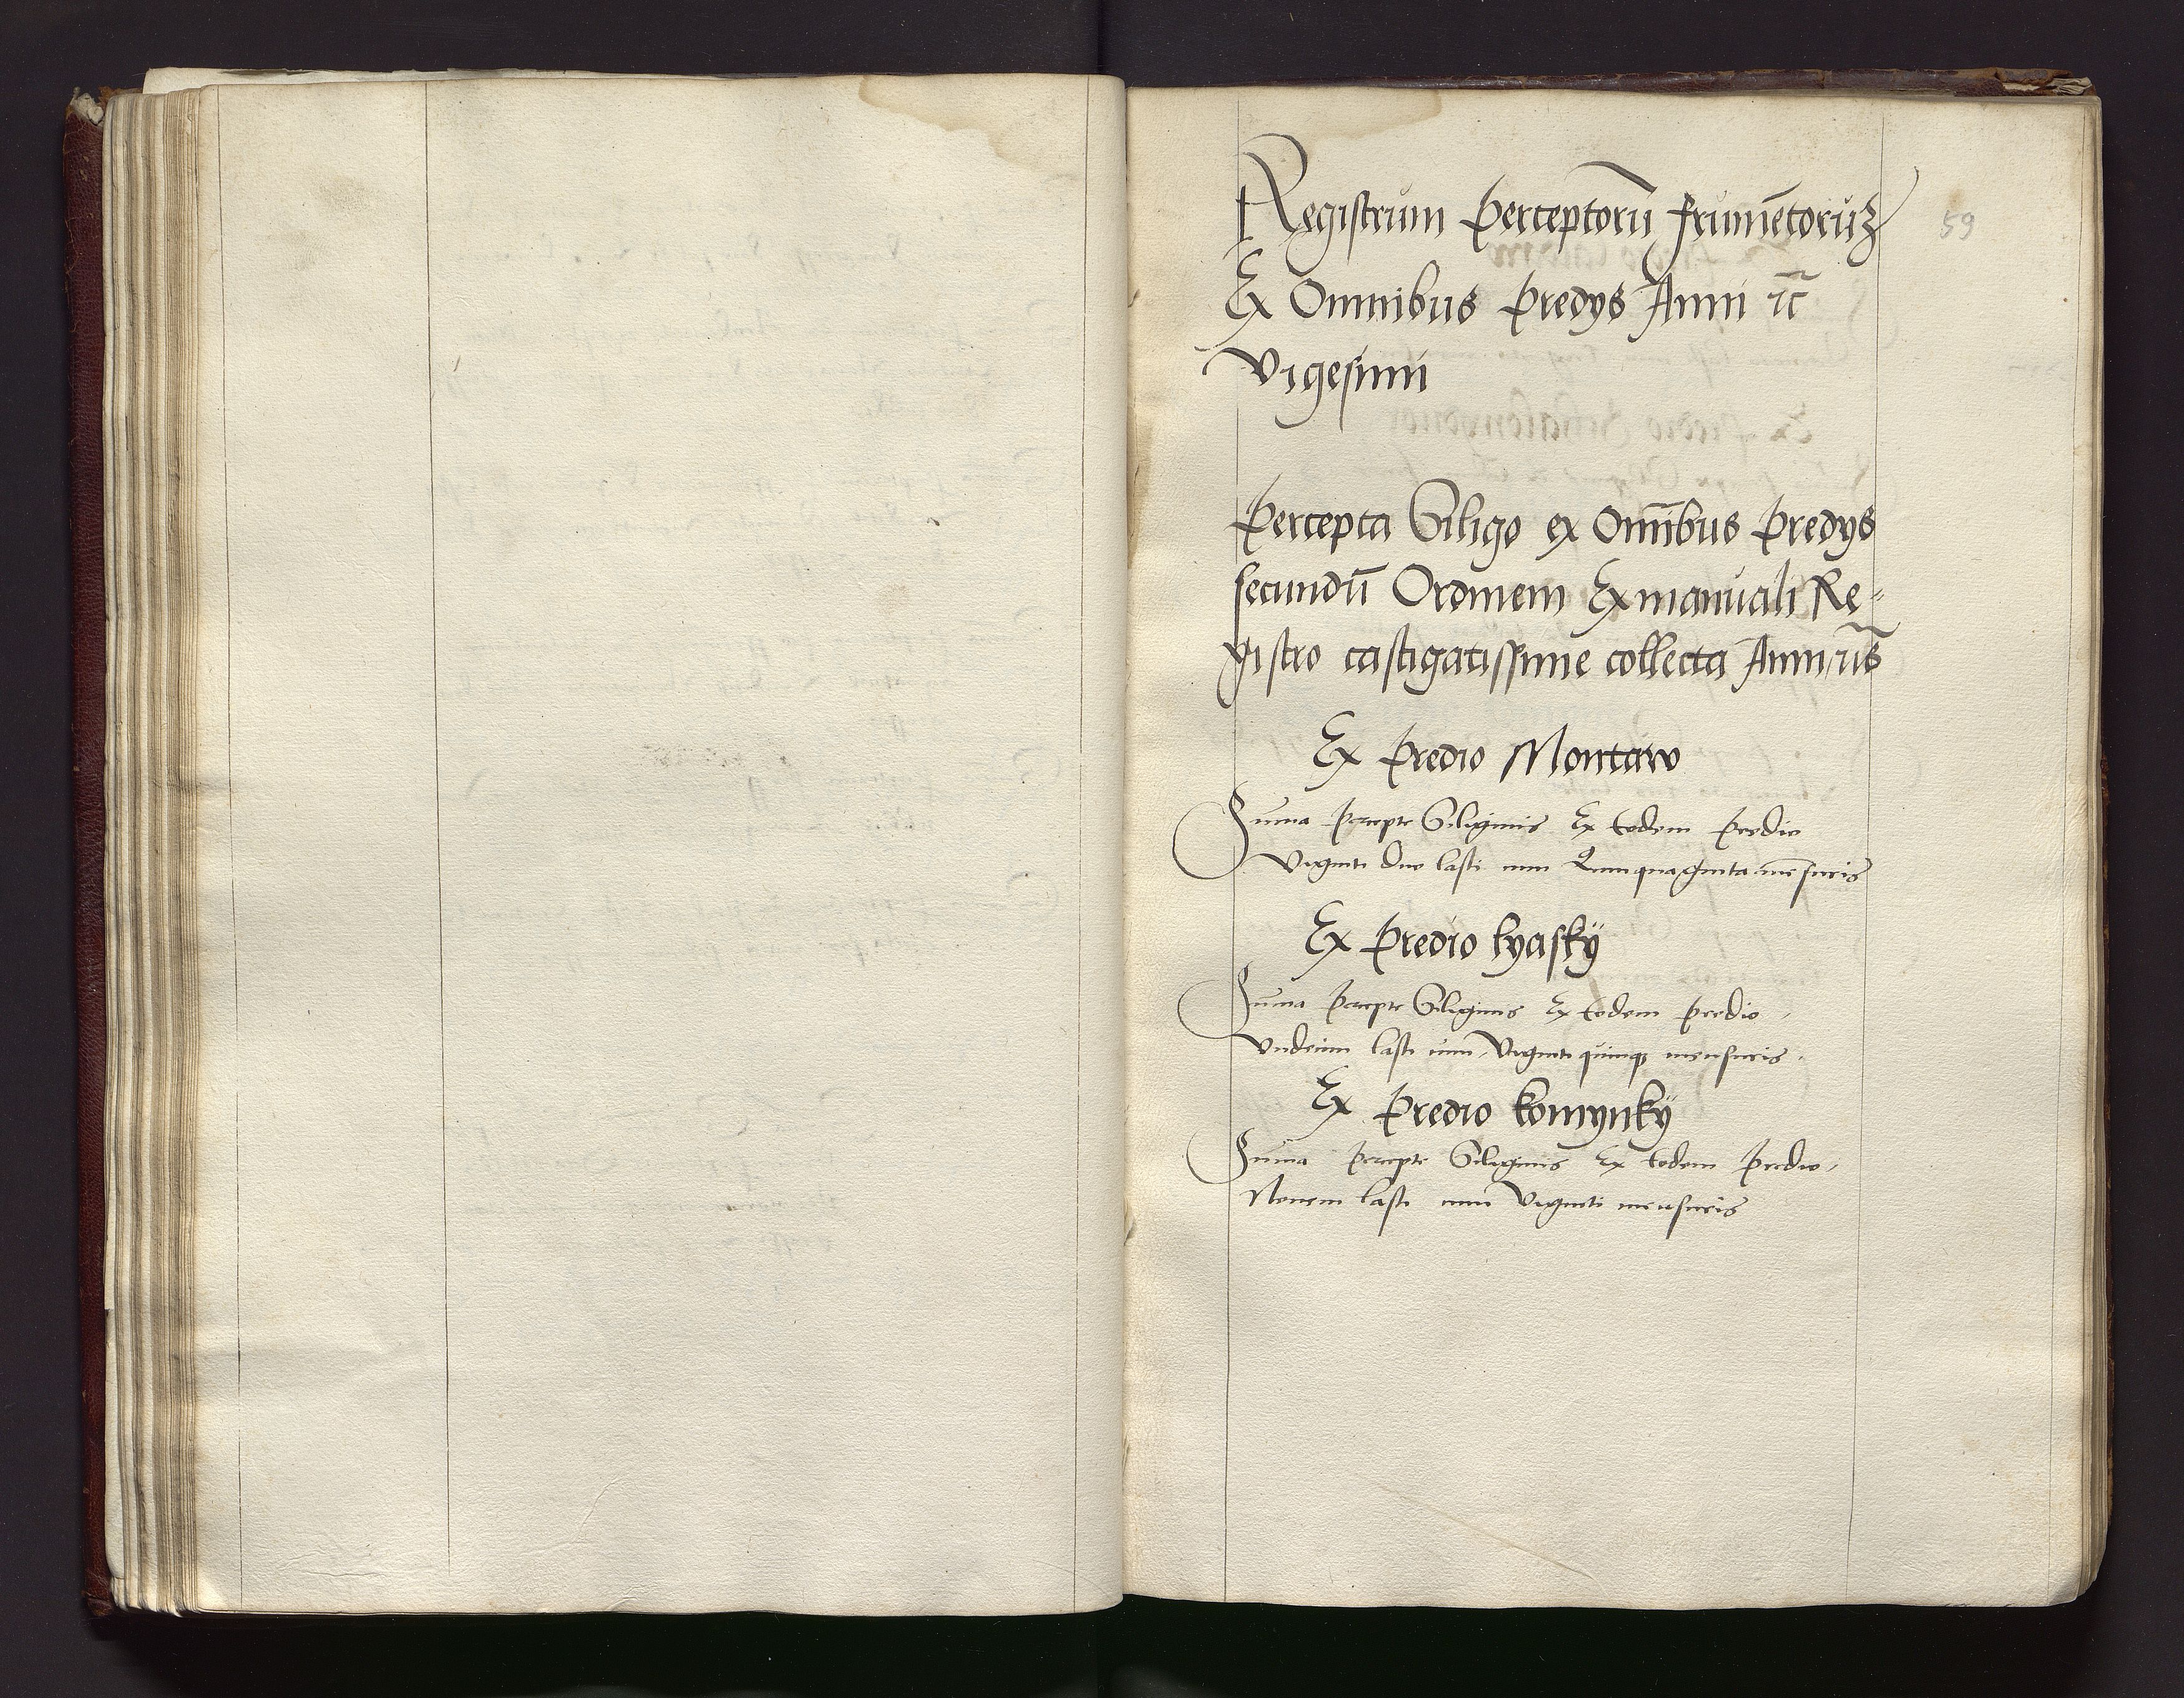 Registrum perceptorū frumētoruʒ
59
Ex Omnibus predys Anni ꝛc̄
Vigesimi
percepta Siligo ex Om̄ibus predys
secundū Ordinem Ex manuali Re-
gistro castigatissime collecta Anni
Ex predio Montaw
Suma percepte Siliginis Ex eodem predio
Viginti duo lasti cum Quinquaginta mēsuris
Ex predio lyasky
Suma percepte Siliginis Ex eodem predio
Vndecim lasti cum Viginti quinqꝫ mensuris
Ex predio komynky
Suma percepte Siliginis Ex eodem predio
Nouem lasti cum Viginti mensuris